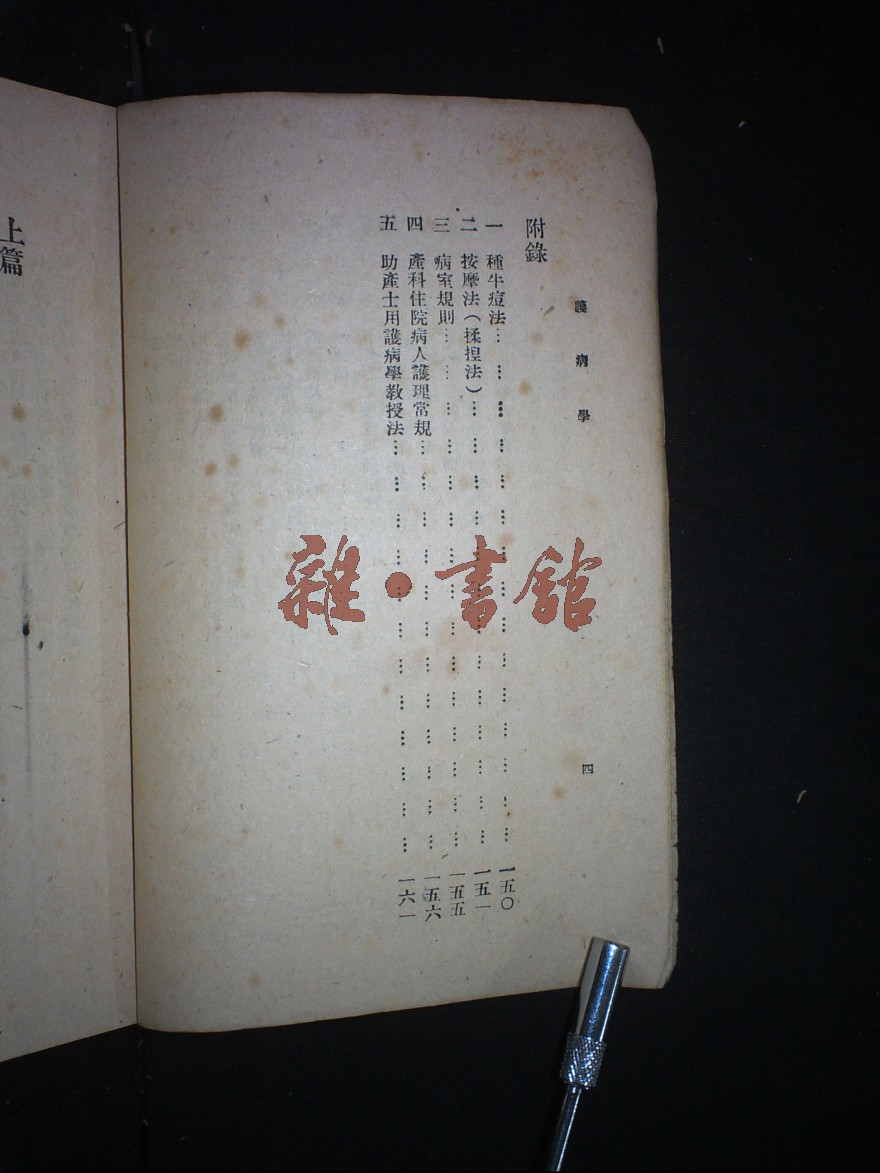 護病學
四
附錄
一 種牛痘法…………………………………一五〇
二 按摩法(揉捏法)…………………………一五一
三 病室規則…………………………………一五五
四 產科住院病人護理常規…………………一五六
五 助產士用護病學教授法…………………一六一
上篇
雜·書館